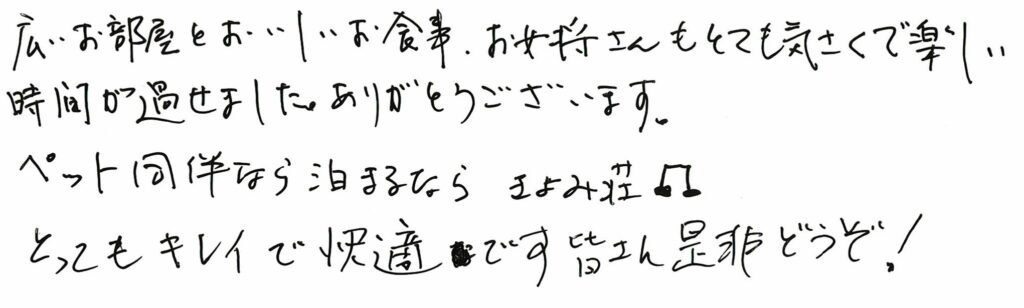 広いお部屋とおいしいお食事、お女将さんもとても気さくで楽しい
時間が過せました。ありがとうございます。
ペット同伴なら泊まるなら きよみ荘♫
とってもキレイで快適です皆さん是非どうぞ!